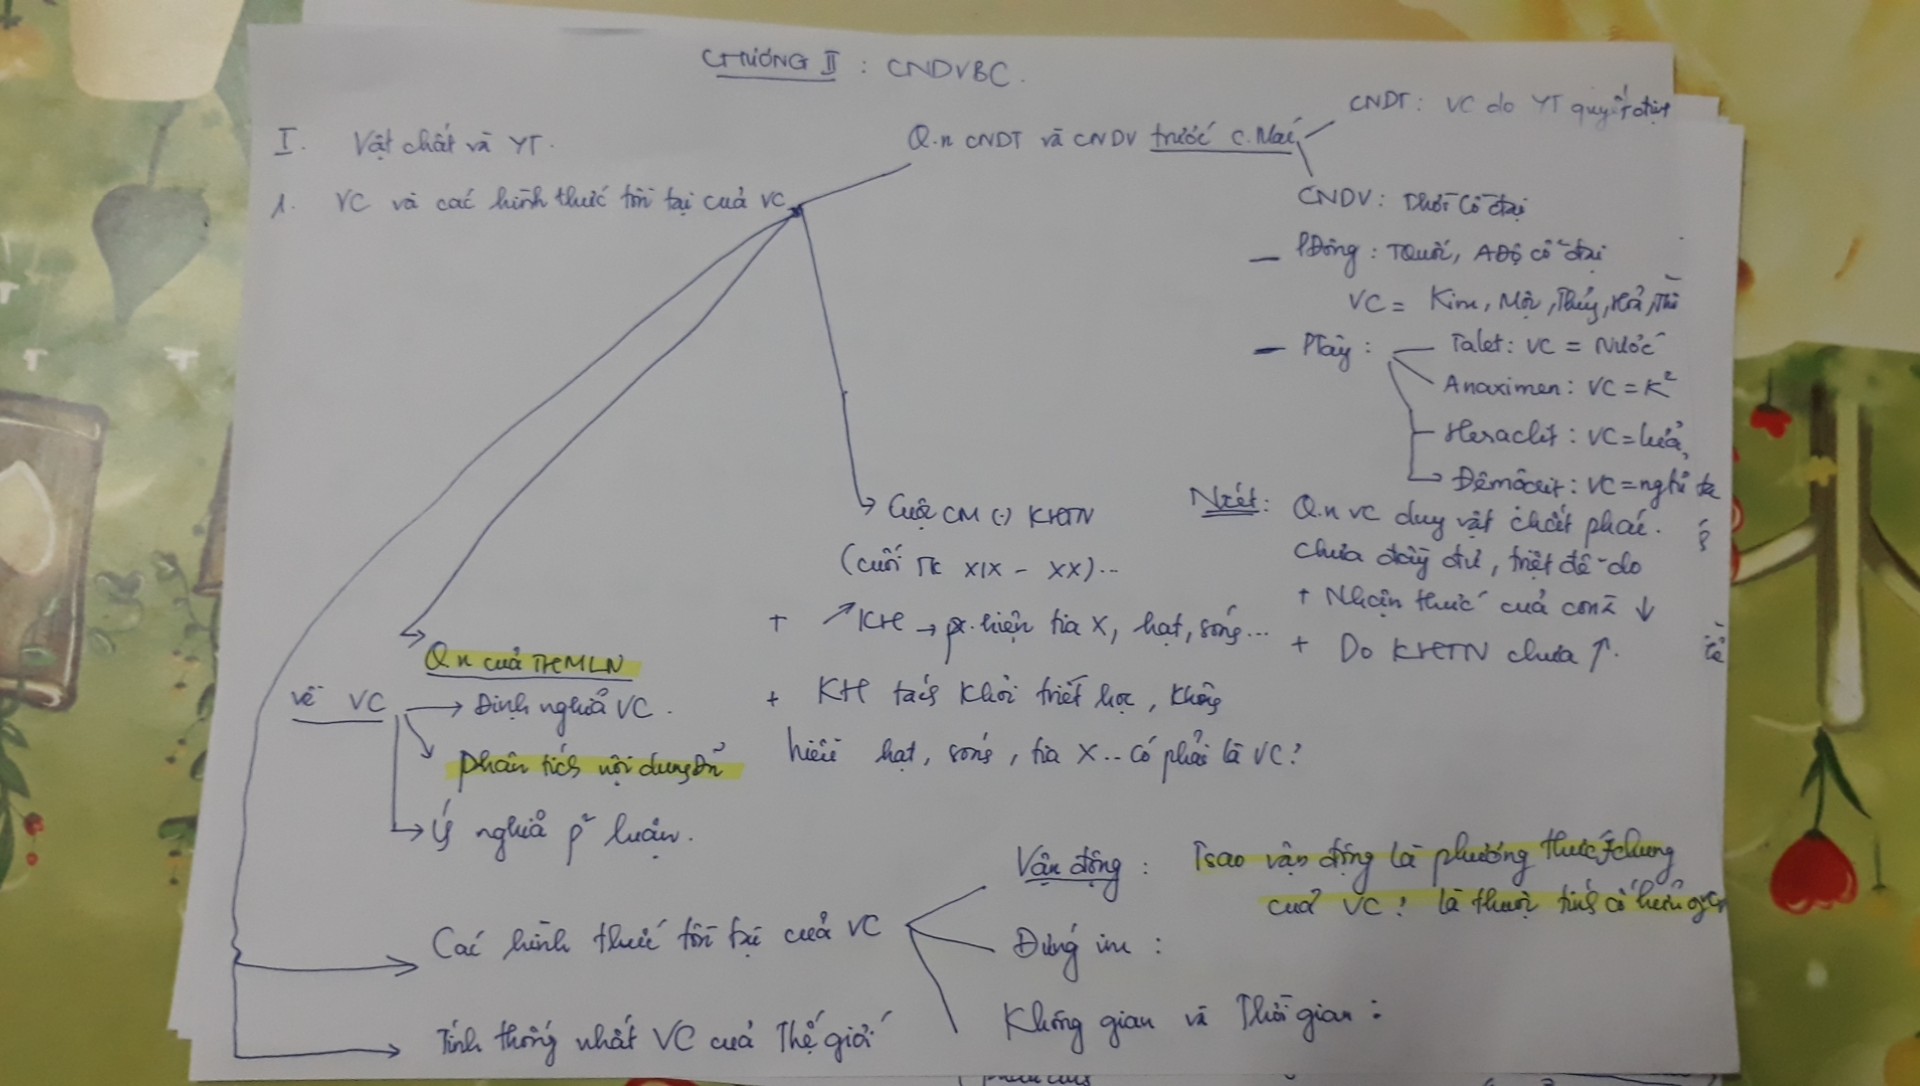 CHƯƠNG II : CNDVBC.
I. Vật chất và YT.
1. VC và các hình thức tồn tại của VC
Q.n CNDT và CNDV trước C.Mác
CNDT: VC do YT quyết định
CNDV: Thời Cổ đại
- PĐông: TQuốc, AĐộ cổ đại
VC = Kim, Mộc, Thủy, Hỏa, Thổ
- PTây:
Talet: VC = Nước
Anaximen: VC = K²
Heraclit: VC = lửa
Đêmôcrit: VC = ngtử
Nxét: Q.n VC duy vật chất phác.
chưa đầy đủ, triệt để do
+ Nhận thức của con ↓
+ Do KHTN chưa ↑.
Cuộc CM (.) KHTN
(cuối TK XIX - XX)...
+ ↗KH → p.hiện tia X, hạt, sóng...
+ KH tách khỏi triết học, không
hiểu hạt, sóng, tia X... có phải là VC?
Q.n của THMLN
về VC
Định nghĩa VC.
phân tích nội dung Đn
Ý nghĩa p² luận.
Các hình thức tồn tại của VC
Vận động: Tsao vận động là phương thức chung
của VC? là thuộc tính cố hữu
Đứng im:
Không gian và Thời gian:
Tính thống nhất VC của Thế giới